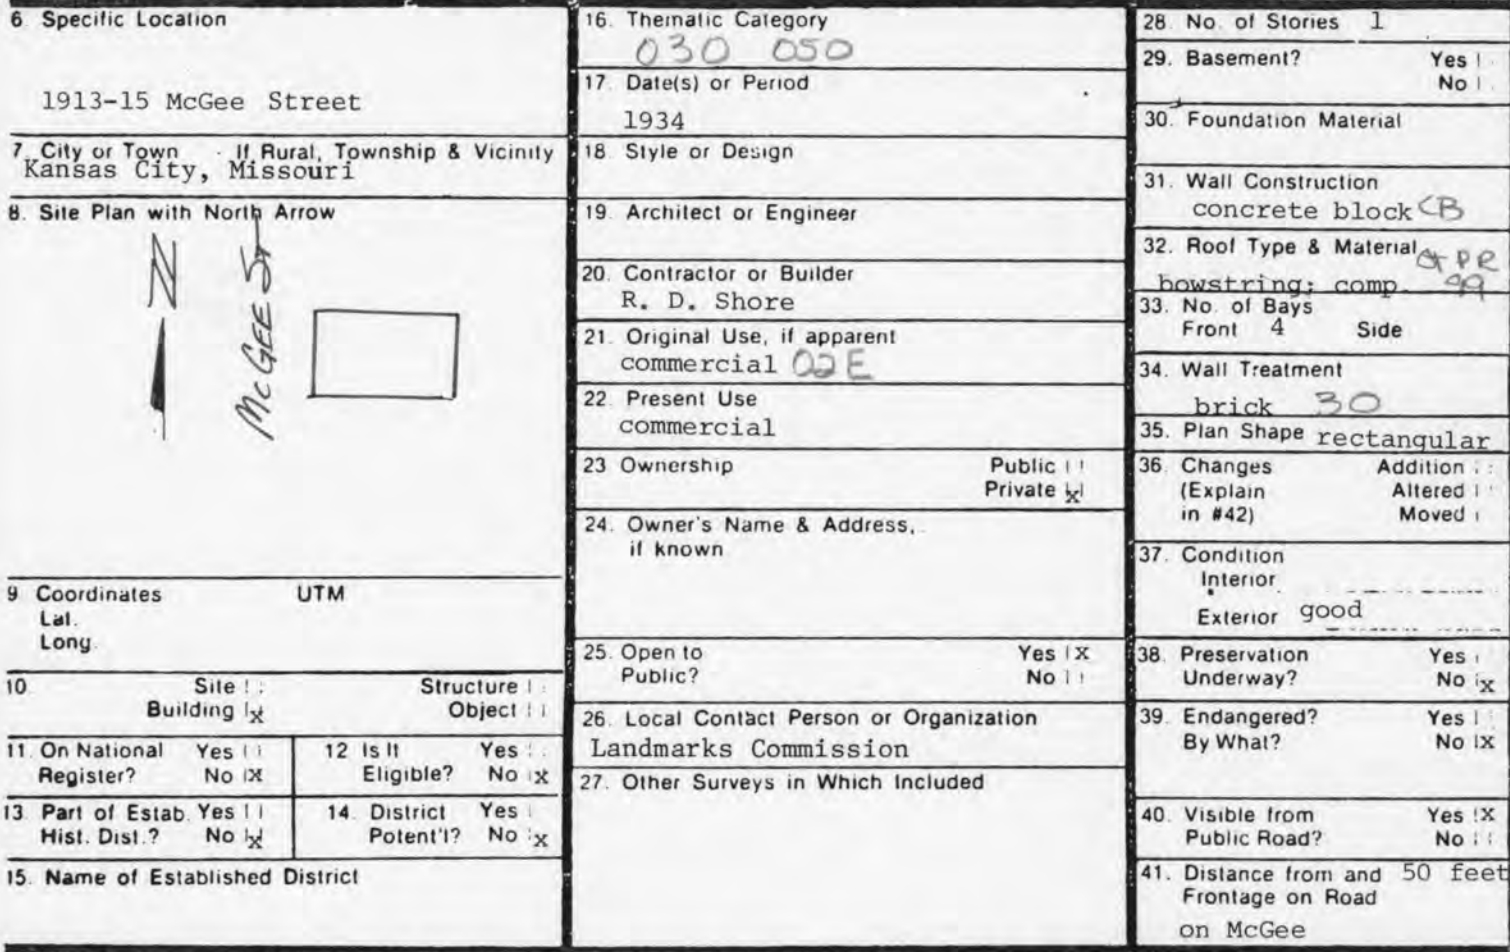 6. Specific Location
1913-15 McGee Street
7. City or Town If Rural, Township & Vicinity
Kansas City, Missouri
8. Site Plan with North Arrow
N
McGEE ST
9 Coordinates UTM
Lat.
Long.
10 Site Structure
Building x Object
11. On National Yes
Register? No x
12 Is It Yes
Eligible? No x
13. Part of Estab. Yes
Hist. Dist.? No x
14. District Yes
Potent'l? No x
15. Name of Established District
16. Thematic Category
030 050
17. Date(s) or Period
1934
18. Style or Design
19. Architect or Engineer
20. Contractor or Builder
R. D. Shore
21. Original Use, if apparent
commercial 02E
22. Present Use
commercial
23 Ownership Public
Private x
24. Owner's Name & Address,
if known
25. Open to Yes x
Public? No
26. Local Contact Person or Organization
Landmarks Commission
27. Other Surveys in Which Included
28. No. of Stories 1
29. Basement? Yes
No
30. Foundation Material
31. Wall Construction
concrete block CB
32. Roof Type & Material
PR
bowstring; comp. 99
33. No. of Bays
Front 4 Side
34. Wall Treatment
brick 30
35. Plan Shape rectangular
36. Changes Addition
(Explain Altered
in #42) Moved
37. Condition
Interior
Exterior good
38. Preservation Yes
Underway? No x
39. Endangered? Yes
By What? No x
40. Visible from Yes x
Public Road? No
41. Distance from and 50 feet
Frontage on Road
on McGee